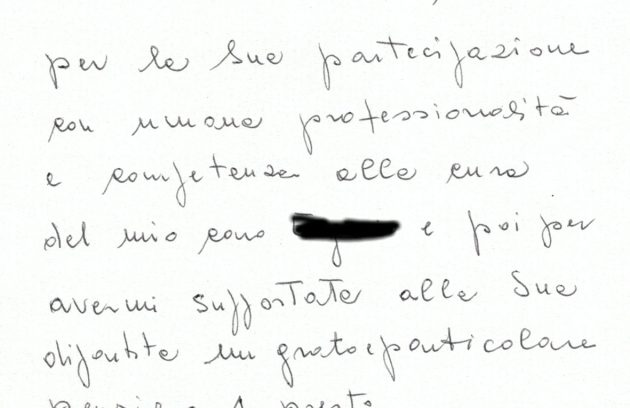 per la Sua partecipazione
con umana professionalità
e competenza alla cura
del mio caro e poi per
avermi supportata alla Sua
un grato e particolare